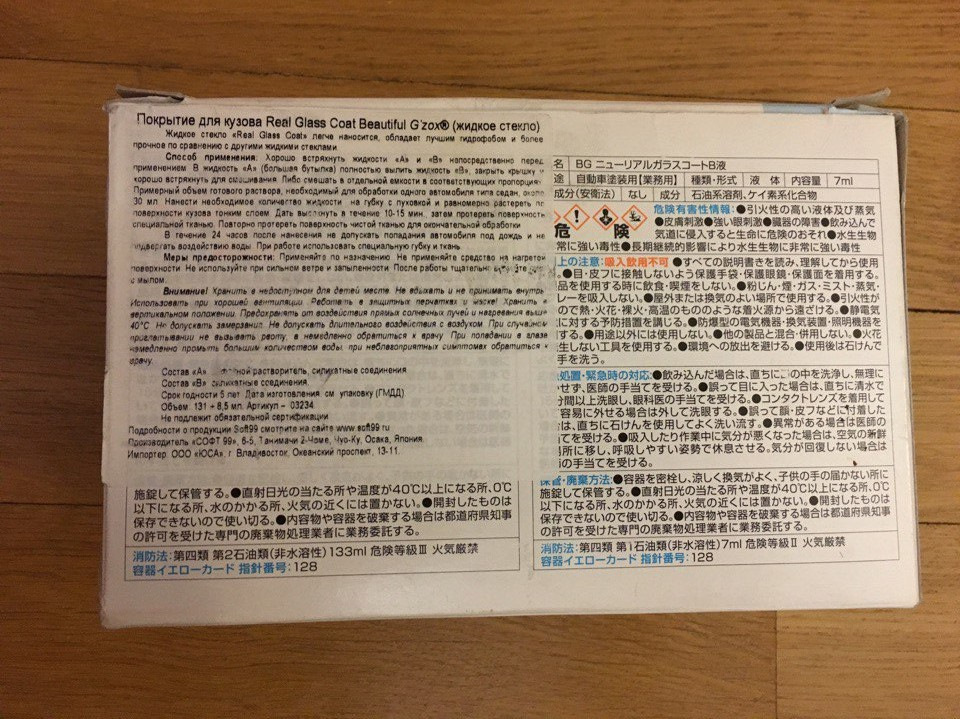 Покрытие для кузова Real Glass Coat Beautiful G'zox® (жидкое стекло)
Жидкое стекло «Real Glass Coat» легче наносится, обладает лучшим гидрофобом и более
прочное по сравнению с другими жидкими стеклами.
Способ применения: Хорошо встряхнуть жидкости «А» и «В» непосредственно перед
применением. В жидкость «А» (большая бутылка) полностью вылить жидкость «В», закрыть крышку и
хорошо встряхнуть для смешивания. Либо смешать в отдельной емкости в соответствующих пропорциях
Примерный объем готового раствора, необходимый для обработки одного автомобиля типа седан, около
30 мл. Нанести необходимое количество жидкости на губку с пуховкой и равномерно растереть по
поверхности кузова тонким слоем. Дать высохнуть в течение 10-15 мин, затем протереть поверхность
специальной тканью. Повторно протереть поверхность чистой тканью для окончательной обработки
В течение 24 часов после нанесения не допускать попадания автомобиля под дождь и не
подвергать воздействию воды. При работе использовать специальную губку и ткань.
Меры предосторожности: Применяйте по назначению. Не применяйте средство на нагретой
поверхности. Не используйте при сильном ветре и запыленности. После работы тщательно
с мылом.
Внимание! Хранить в недоступном для детей месте. Не вдыхать и не принимать внутрь
Использовать при хорошей вентиляции. Работать в защитных перчатках и маске! Хранить в
вертикальном положении. Предохранять от воздействия прямых солнечных лучей и нагревания выше
40°С. Не допускать замерзания. Не допускать длительного воздействия с воздухом. При случайном
проглатывании не вызывать рвоту, а немедленно обратиться к врачу. При попадании в глаза
немедленно промыть большим количеством воды, при неблагоприятных симптомах обратиться к
врачу.
Состав «А» растворитель, силикатные соединения.
Состав «В» силикатные соединения.
Срок годности 5 лет. Дата изготовления см. упаковку (ГМДД).
Объем: 131 + 8,5 мл. Артикул – 03234.
Не подлежит обязательной сертификации
Подробности о продукции Soft99 смотрите на сайте www.soft99
Производитель «СОФТ 99», 6-5, Танимачи 2-Чоме, Чуо-Ку, Осака, Япония.
Импортер: ООО «ЮСА», г. Владивосток, Океанский проспект, 13-11.
施錠して保管する。●直射日光の当たる所や温度が40℃以上になる所、0℃
以下になる所、水のかかる所、火気の近くには置かない。●開封したものは
保存できないので使い切る。●内容物や容器を破棄する場合は都道府県知事
の許可を受けた専門の廃棄物処理業者に業務委託する。
消防法:第四類 第2石油類(非水溶性)133ml 危険等級Ⅲ 火気厳禁
容器イエローカード 指針番号:128
名 BG ニューリアルガラスコートB液
途 自動車塗装用【業務用】 種類・形式 液 体 内容量 7ml
成分(安衛法) なし 成分 石油系溶剤、ケイ素系化合物
危 険
危険有害性情報:●引火性の高い液体及び蒸気
●皮膚刺激●強い眼刺激●臓器の障害●飲み込んで
気道に侵入すると生命に危険のおそれ●水生生物
常に強い毒性●長期継続的影響により水生生物に非常に強い毒性
上の注意:吸入飲用不可 ●すべての説明書きを読み、理解してから使用
●目・皮フに接触しないよう保護手袋・保護眼鏡・保護面を着用する。
品を使用する時に飲食・喫煙をしない。●粉じん・煙・ガス・ミスト・蒸気・
レーを吸入しない。●屋外または換気のよい場所で使用する。●引火性が
ので熱・火花・裸火・高温のもののような着火源から遠ざける。●静電気
に対する予防措置を講じる。●防爆型の電気機器・換気装置・照明機器を
する。●用途以外には使用しない。●他の製品と混合・併用しない。●火花
生しない工具を使用する。●環境への放出を避ける。●使用後は石けんで
手を洗う。
処置・緊急時の対応:●飲み込んだ場合は、直ちに口の中を洗浄し、無理に
せず、医師の手当てを受ける。●誤って目に入った場合は、直ちに清水で
分間以上洗眼し、眼科医の手当てを受ける。●コンタクトレンズを着用して
容易に外せる場合は外して洗眼する。●誤って顔・皮フなどに付着した
は、直ちに石けんを使用してよく洗い流す。●異常がある場合は医師の
てを受ける。●吸入したり作業中に気分が悪くなった場合は、空気の新鮮
所に移し、呼吸しやすい姿勢で休息させる。気分が回復しない場合は
の手当てを受ける。
保管・廃棄方法:●容器を密栓し、涼しく換気がよく、子供の手の届かない所に
施錠して保管する。●直射日光の当たる所や温度が40℃以上になる所、0℃
以下になる所、水のかかる所、火気の近くには置かない。●開封したものは
保存できないので使い切る。●内容物や容器を破棄する場合は都道府県知事
の許可を受けた専門の廃棄物処理業者に業務委託する。
消防法:第四類 第1石油類(非水溶性)7ml 危険等級Ⅱ 火気厳禁
容器イエローカード 指針番号:128